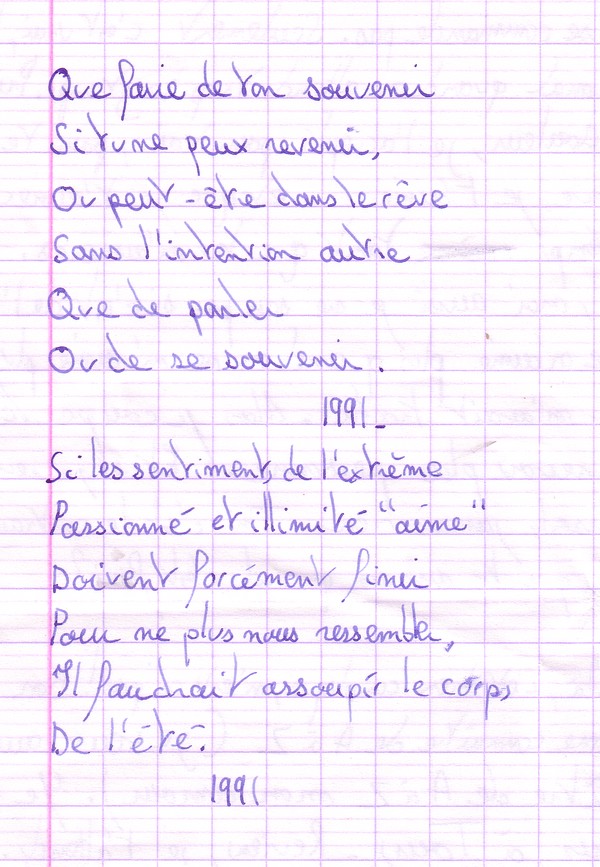 Que faire de ton souvenir
Si tu ne peux revenir,
Ou peut-être dans le rêve
Sans l'intention autre
Que de parler
Ou de se souvenir.
1991_
Si les sentiments, de l'extrême
Passionné et illimité "aime"
Doivent forcément finir
Pour ne plus nous ressembler,
Il faudrait assoupir le corps
De l'été.
1991